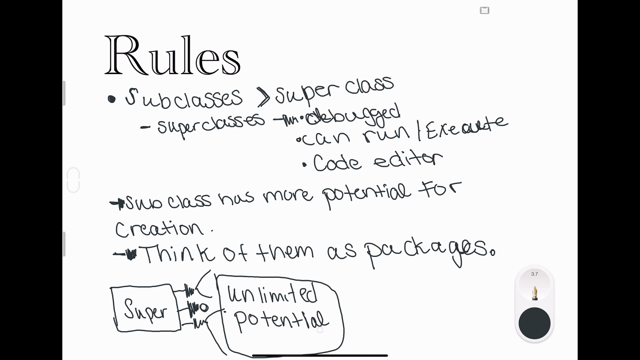 Rules
• Subclasses > super class
- superclasses → • debugged
• can run / Execute
• Code editor
→ Subclass has more potential for
creation.
→ Think of them as packages.
Super
unlimited
potential
0.7